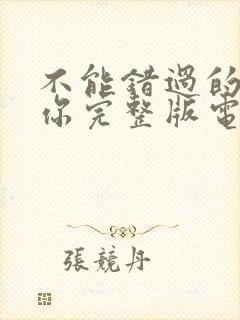 不能錯過的
你完整版電
張競丹